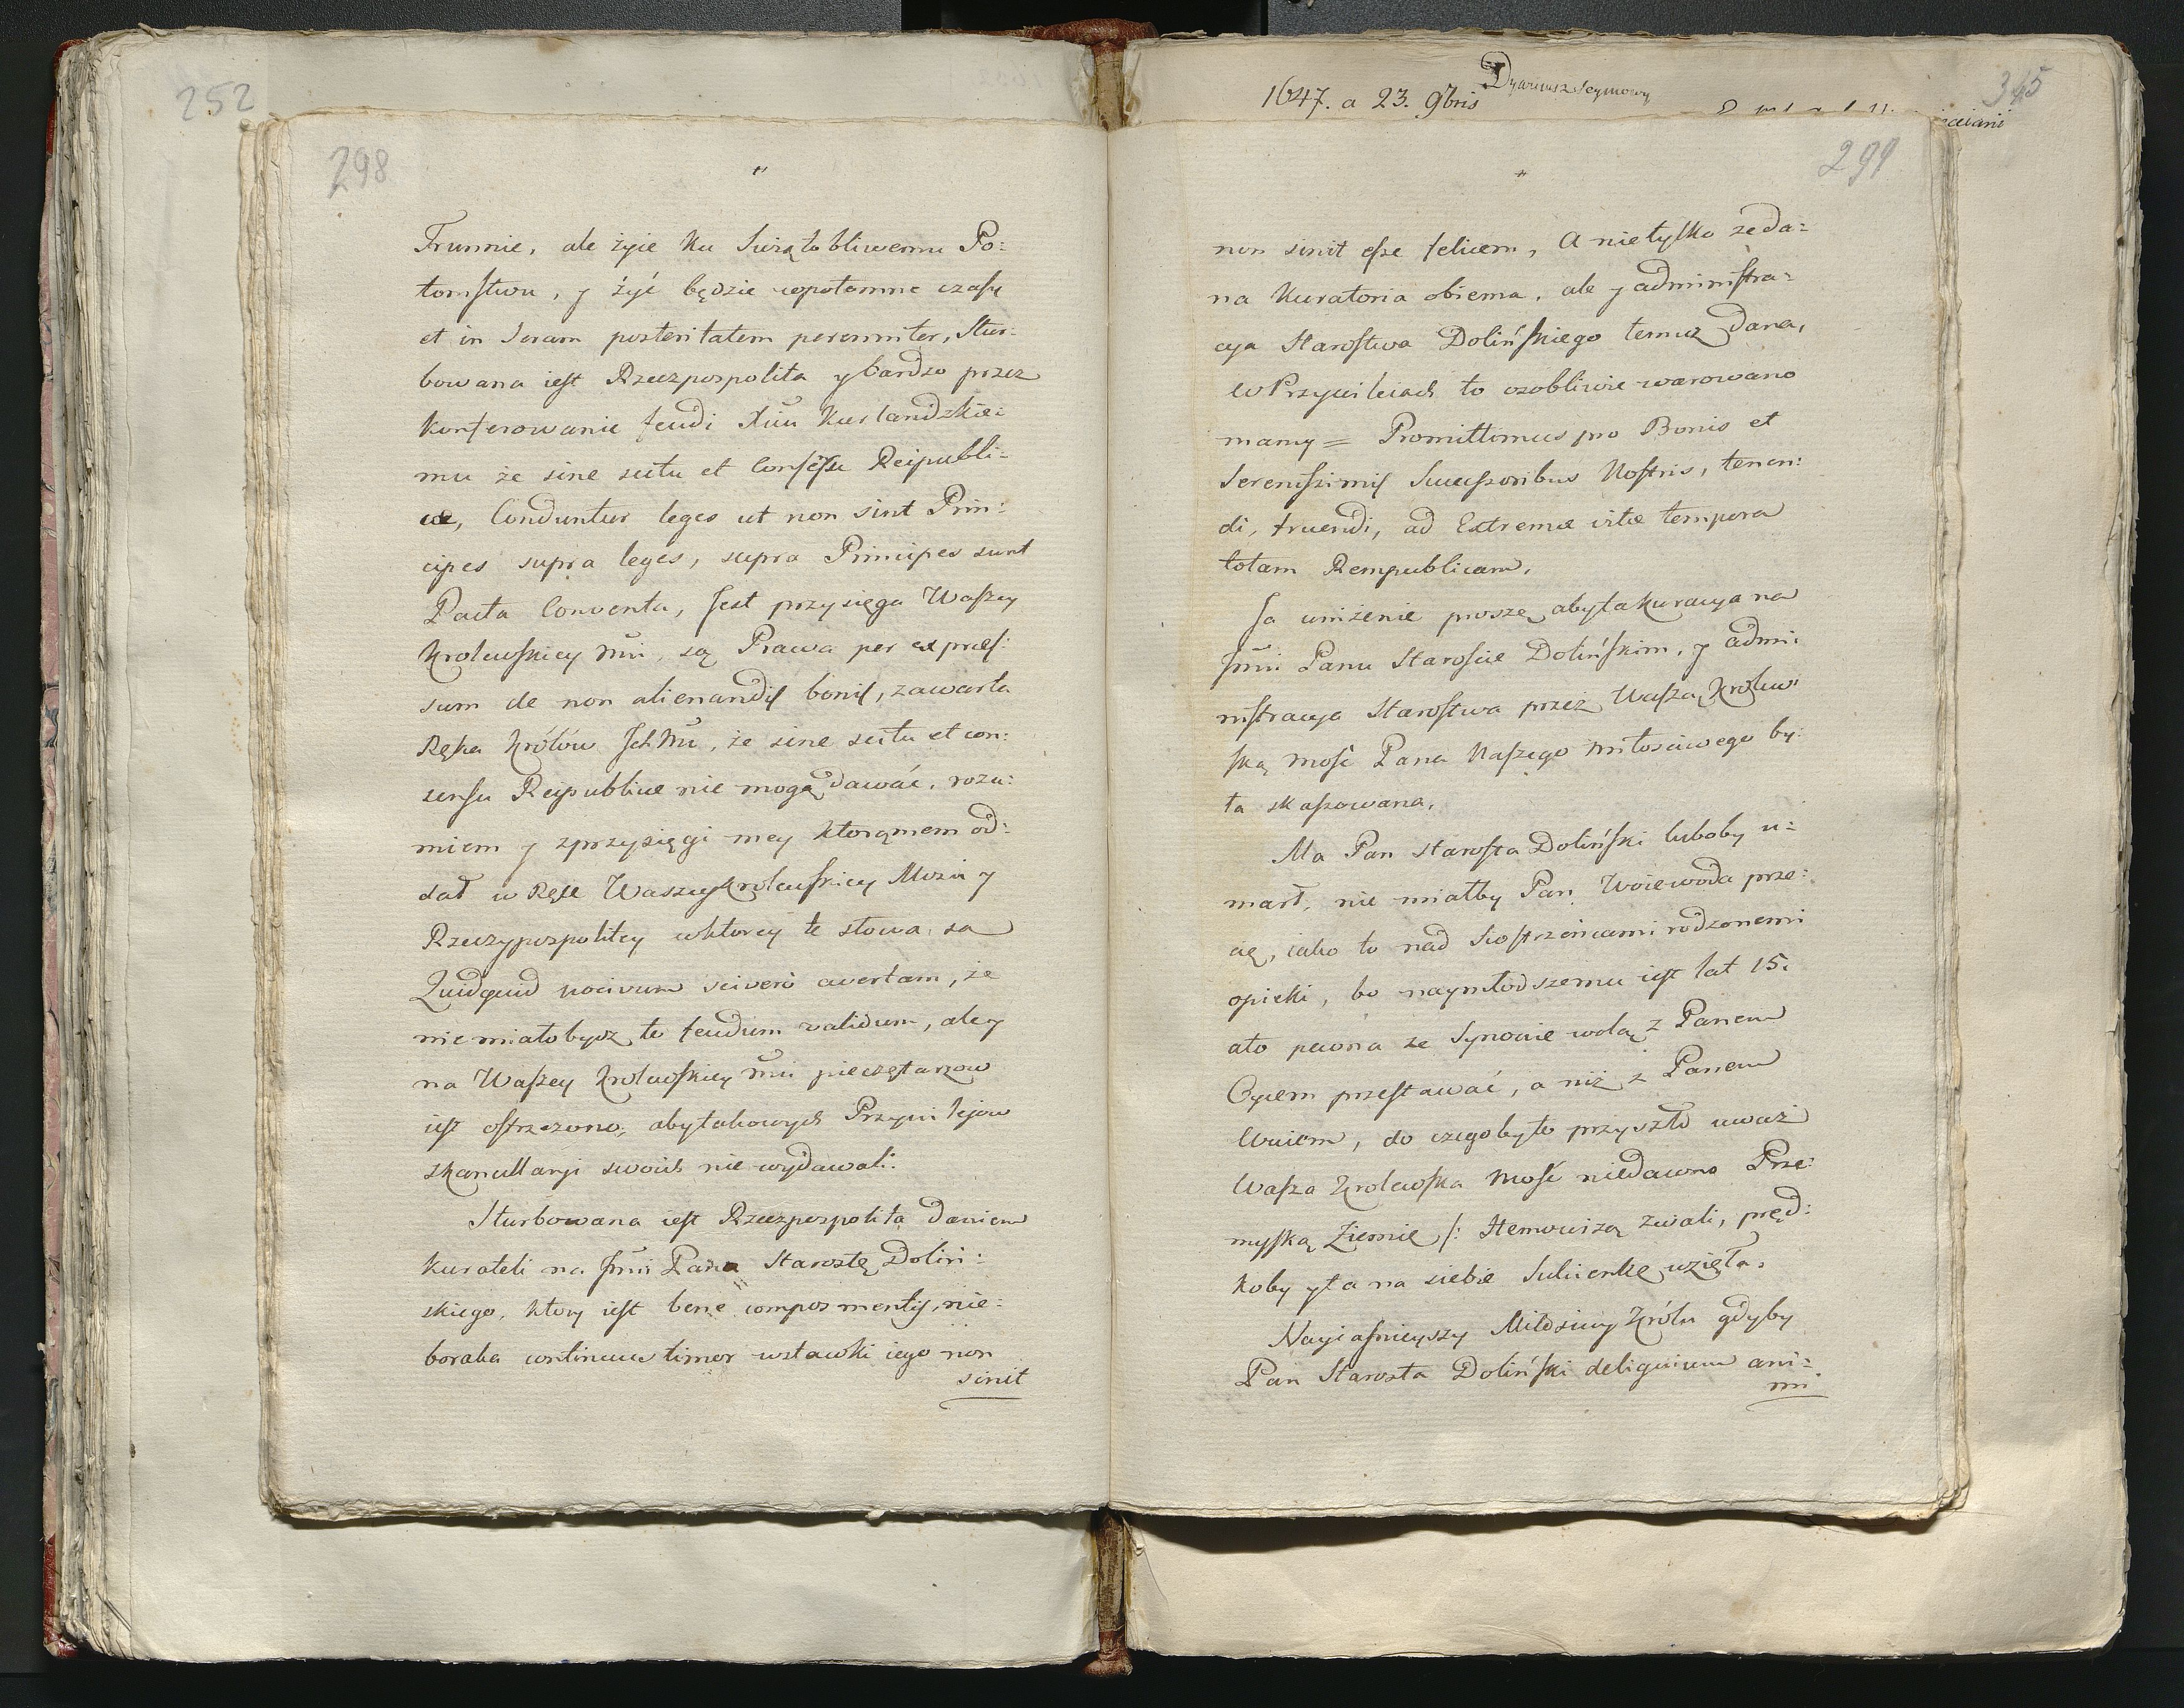 252
298
Trunnie, ale żyie ku Swiątobliwemu Po:
tomstwu, y żyć będzie wpotomne czasy
et in seram posteritatem perenniter, Stur:
bowana iest Rzeczpospolita y bardzo przez
konferowanie feudi Xciu Kurlandzkie:
mu że sine scitu et Consensu Reipubli:
cæ, Conduntur leges ut non sint Prin:
cipes supra leges, supra Principes sunt
Pacta Conventa, Jest przysięga Waszey
Krolewskiey Mci, są Prawa per expres:
sum de non alienandis bonis, zawarta
Ręka Królów JchMci, że sine scitu et con:
sensu Reipublicæ nie mogą dawać, rozu:
miem y zprzysięgi mey ktorąmem od:
dał w Ręce Waszey Krolewskiey Mosci y
Rzeczypospolitey wktorey te słowa są
Quidquid nocivum scivero avertam, że
nie miało bydz to feudum validum, ale y
na Waszey Krolewskiey Mci pieczętarzow
iest ostrzezono, aby takowych Przywilejow
zkancellaryi swoich nie wydawali.
Sturbowana iest Rzeczpospolita daniem
kurateli na Jmci Pana Starostę Doliń:
skiego, ktory iest bene compos mentis, nie:
boraka continuus timor wstawki iego non
sinit
1647. a 23. 9bris
Dyariusz Seymowy
345
299
non sinit esse felicem, A nietylko że da:
na Kuratoria obiema, ale y administra:
cya Starostwa Dolińskiego temuz dana,
w Przywileiach to osobliwie warowano
mamy = Promittimus pro Bonis et
Serenissimis Successoribus Nostris, tenen:
di, fruendi, ad Extrema vitæ tempora
totam Rempublicam.
Ja uniżenie proszę aby ta kuracya na
Jmci Panu Staroscie Dolińskim, y admi:
nistracya Starostwa przez Waszą Krolew:
ską Mość Pana Naszego Miłosciwego by:
ta skassowana.
Ma Pan Starosta Doliński luboby u:
marł, nie miałby Pan Woiewoda prze:
cię, iako to nad Siostrzeńcami rodzonemi
opieki, bo naymłodszemu iest lat 15.
ato pewna że Synowie wolą z Panem
Oycem przestawać, a niż z Panem
Wuiem, do czegoby to przyszło uważ
Wasza Krolewska Mość niedawno Prze:
myską Ziemię /: Hemowiszą zwali, pręd:
koby y ta na siebie Sukienkę wzięła.
Nayiasnieyszy Miłosciwy Królu gdyby
Pan Starosta Doliński deliquium ani:
mi